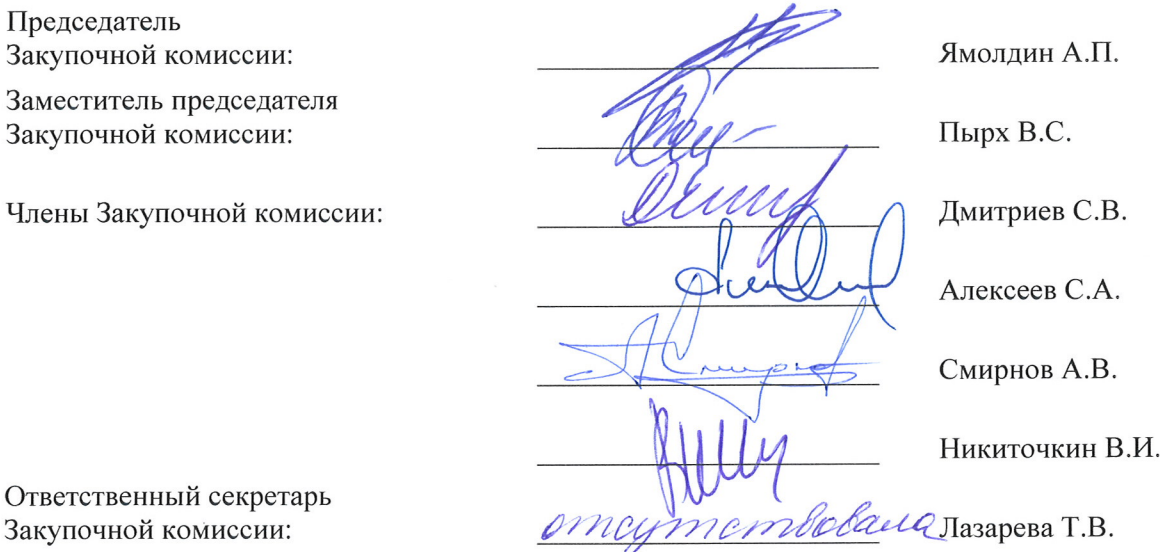 Председатель
Закупочной комиссии: Ямолдин А.П.
Заместитель председателя
Закупочной комиссии: Пырх В.С.
Члены Закупочной комиссии: Дмитриев С.В.
Алексеев С.А.
Смирнов А.В.
Никиточкин В.И.
Ответственный секретарь
Закупочной комиссии: отсутствовала Лазарева Т.В.